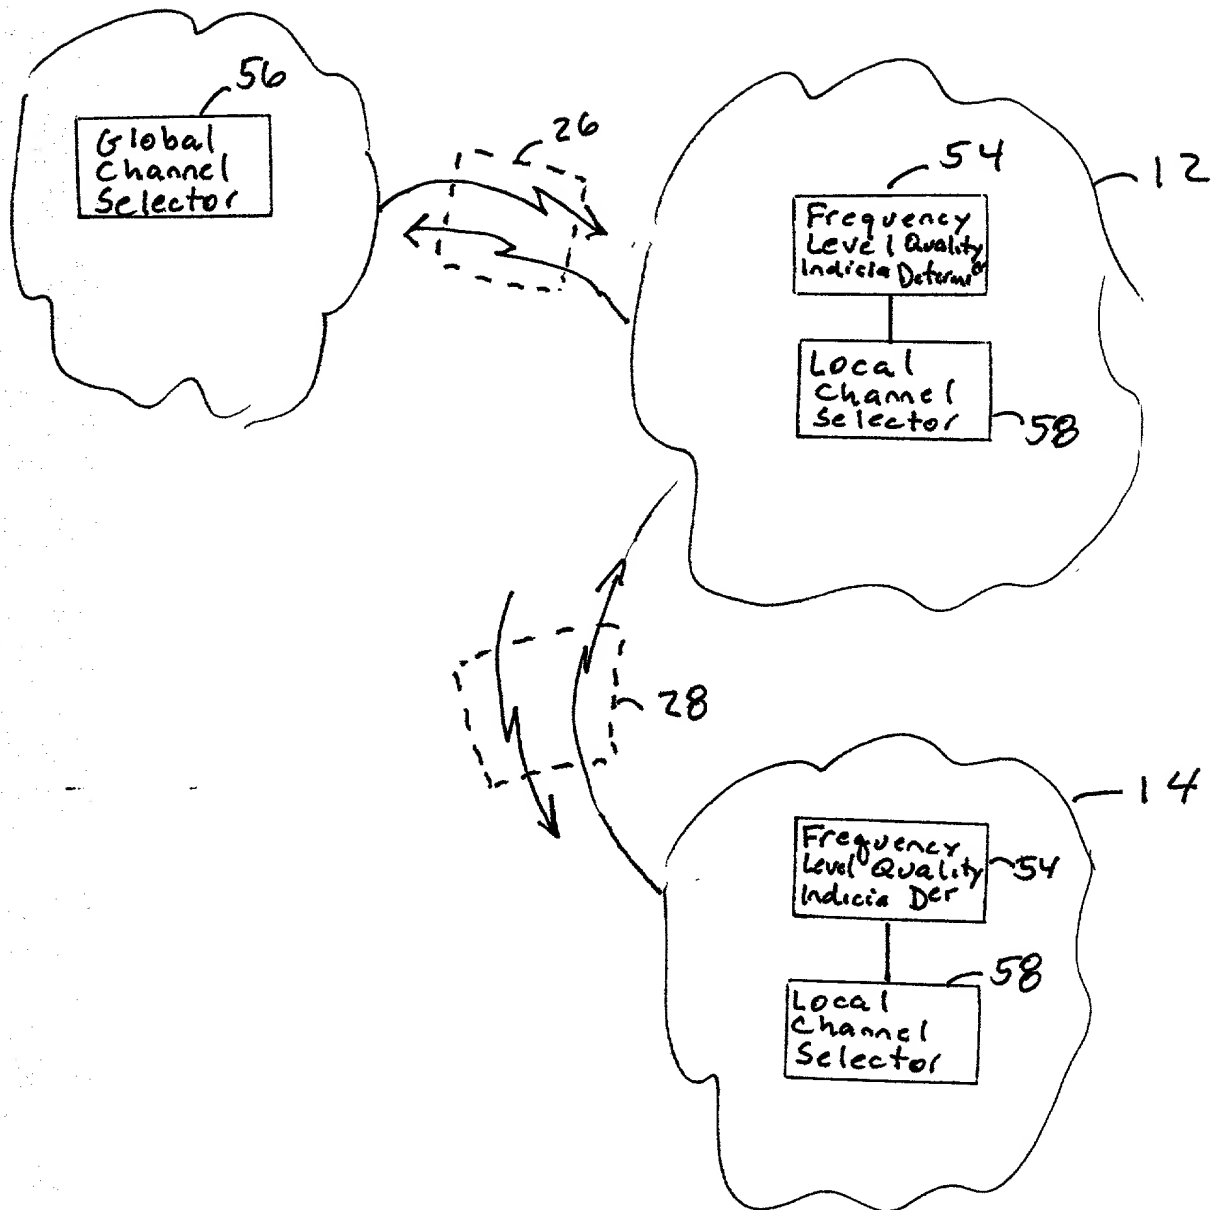 56
Global
Channel
Selector
26
54
12
Frequency
Level Quality
Indicia
Local
Channel
Selector
58
28
14
Frequency
Level Quality
Indicia Der
54
58
Local
Channel
Selector